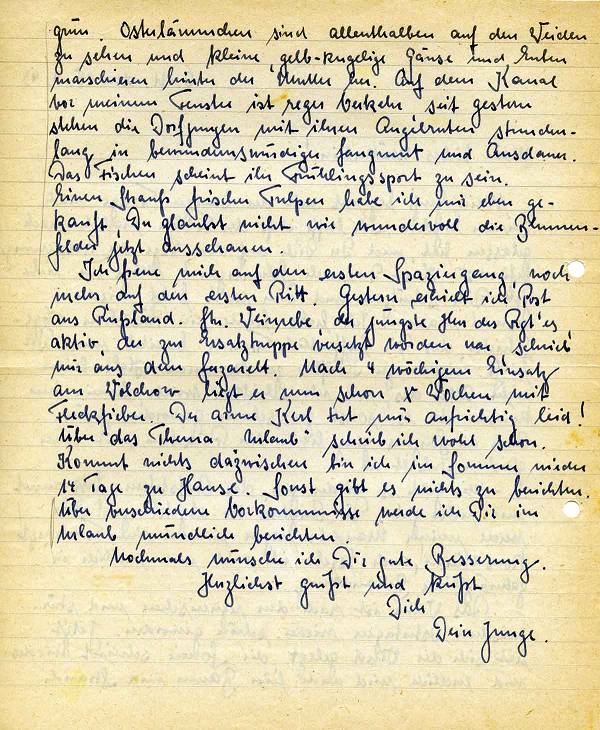 grün. Osterlämmchen sind allenthalben auf den Weiden
zu sehen und kleine, gelb-kugelige Gänse und Enten
marschieren hinter der Mutter her. Auf dem Kanal
vor meinem Fenster ist reger Verkehr, seit gestern
stehen die Dorfjungen mit ihren Angelruten stunden-
lang in bewundernswürdiger Fangwut und Ausdauer.
Das Fischen scheint ihr Frühlingssport zu sein.
Einen Strauß frischer Tulpen habe ich mir eben ge-
kauft, Du glaubst nicht wie wundervoll die Blumen-
felder jetzt ausschauen.
Ich freue mich auf den ersten Spaziergang, noch
mehr auf den ersten Ritt. Gestern erhielt ich Post
aus Rußland. Ltn. der jüngste Herr des Rgt's
aktiv, der zur Ersatztruppe versetzt worden war, schrieb
mir aus dem Lazarett. Nach 4 wöchigem Einsatz
am Wolchow liegt er nun schon X Wochen mit
Fleckfieber. Der arme Kerl tut mir aufrichtig leid!
Über das Thema "Urlaub" schrieb ich wohl schon.
Kommt nichts dazwischen bin ich im Sommer wieder
14 Tage zu Hause. Sonst gibt es nichts zu berichten.
Über verschiedene Vorkommnisse werde ich Dir im
Urlaub mündlich berichten.
Nochmals wünsche ich Dir gute Besserung.
Herzlichst grüßt und küßt
Dich
Dein Junge.